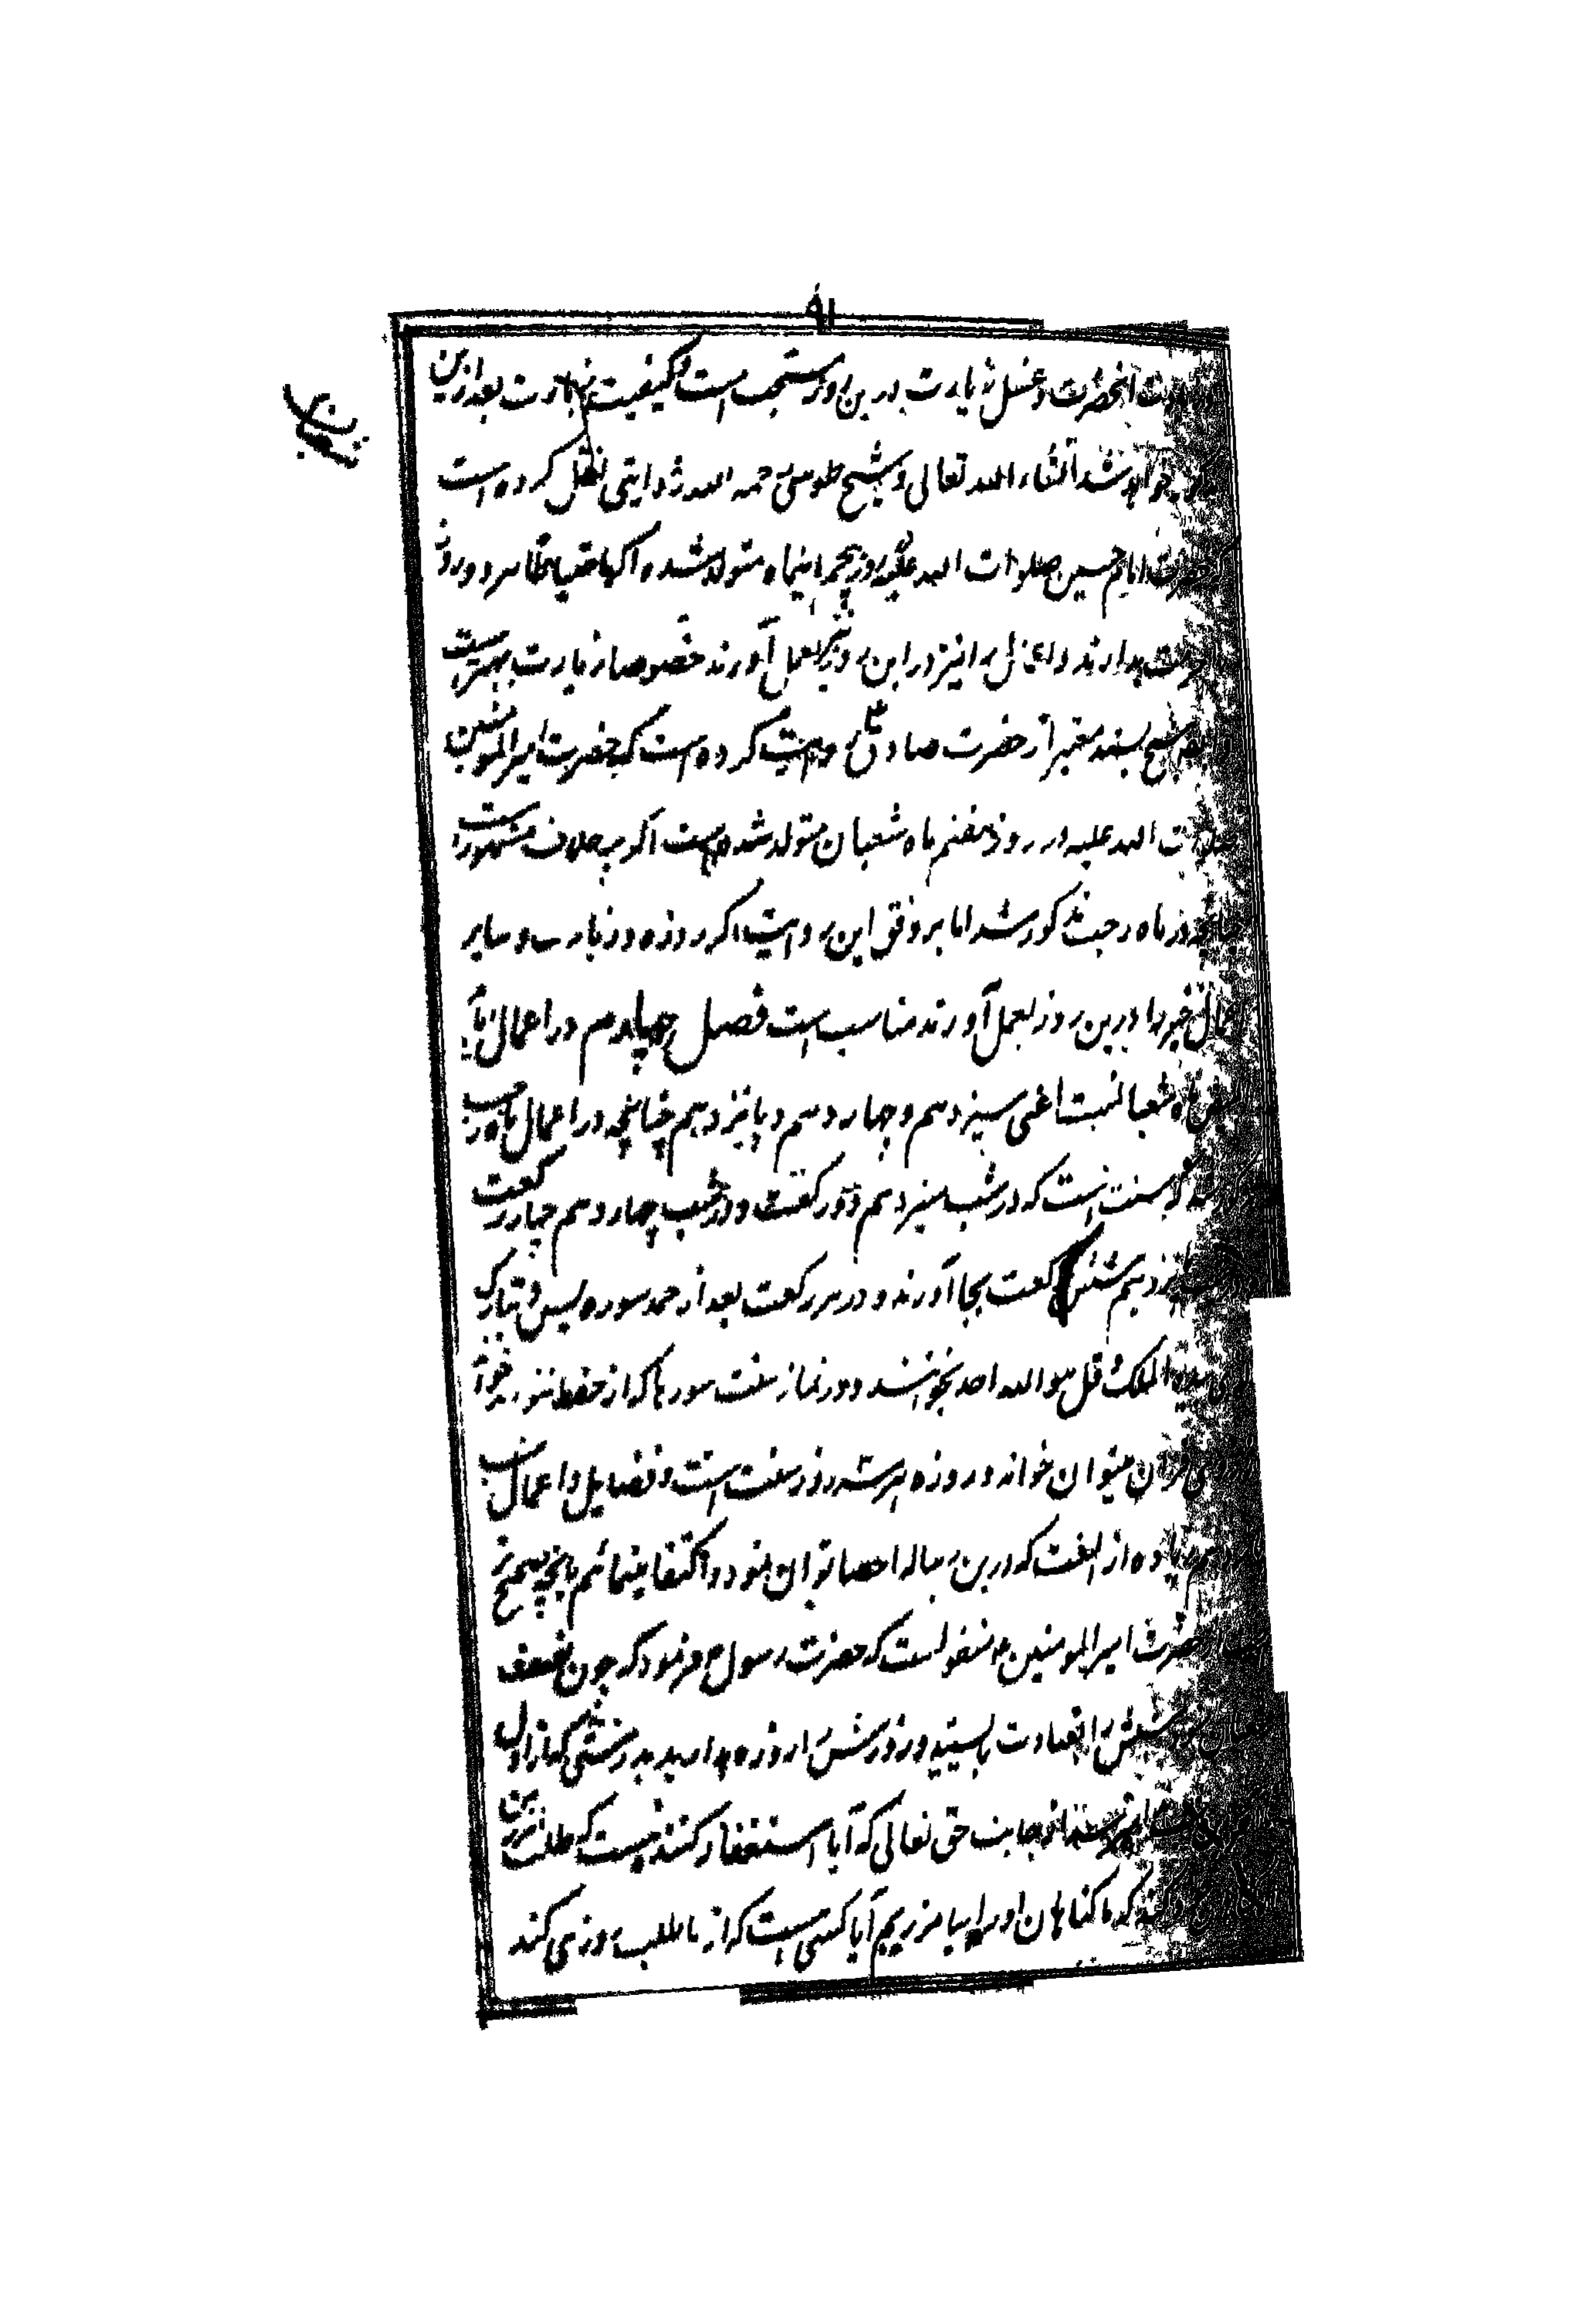 ۹۱
شعبان
آنحضرت و غسل زیارت درین روز مستحب است و کیفیت زیارت بعد ازین
خواهد شد انشاء الله تعالی و شیخ طوسی رحمه الله روایتی نقل کرده است
امام حسین صلوات الله علیه روز پنجم اینماه متولد شده اگر احتیاطا هر دو روز
بدارند و اعمال را نیز در این روز بعمل آورند خصوصا زیارت بهتر است
شیخ بسند معتبر از حضرت صادق ع روایت کرده است که حضرت امیرالمومنین
الله علیه در روز هفتم ماه شعبان متولد شده است اگرچه خلاف مشهور است
در ماه رجب مذکور شد اما بر وفق این روایت اگر روزه و زیارت و سایر
اعمال خیر را درین روز بعمل آورند مناسب است فصل چهارم در اعمال ایام
ماه شعبانست اعنی سیزدهم و چهاردهم و پانزدهم چنانچه در اعمال ماه رجب
سنت است که در شب سیزدهم دو رکعت و در شب چهاردهم چهار رکعت
پانزدهم شش رکعت بجا آورند و در هر رکعت بعد از حمد سوره یس و تبارک
الملک و قل هو الله احد بخوانند و در نماز سنت سوره ها که از حفظ نتوانند خواند
قرآن میتوان خواند و روزه هر سه روز سنت است و فضایل و اعمال شب
زیاده از انست که درین رساله احصا توان نمود و اکتفا مینمائیم بانچه صحیح تر
حضرت امیرالمومنین ع منقولست که حضرت رسول ص فرمود که چون نصف
شبش را بعبادت بایستید و روزش را روزه بدارید بدرستی که از اول
از جانب حق تعالی که آیا استغفار کننده هست که طلب آمرزش
کند که ما گناهان او را بیامرزیم آیا کسی هست که از ما طلب روزی کند